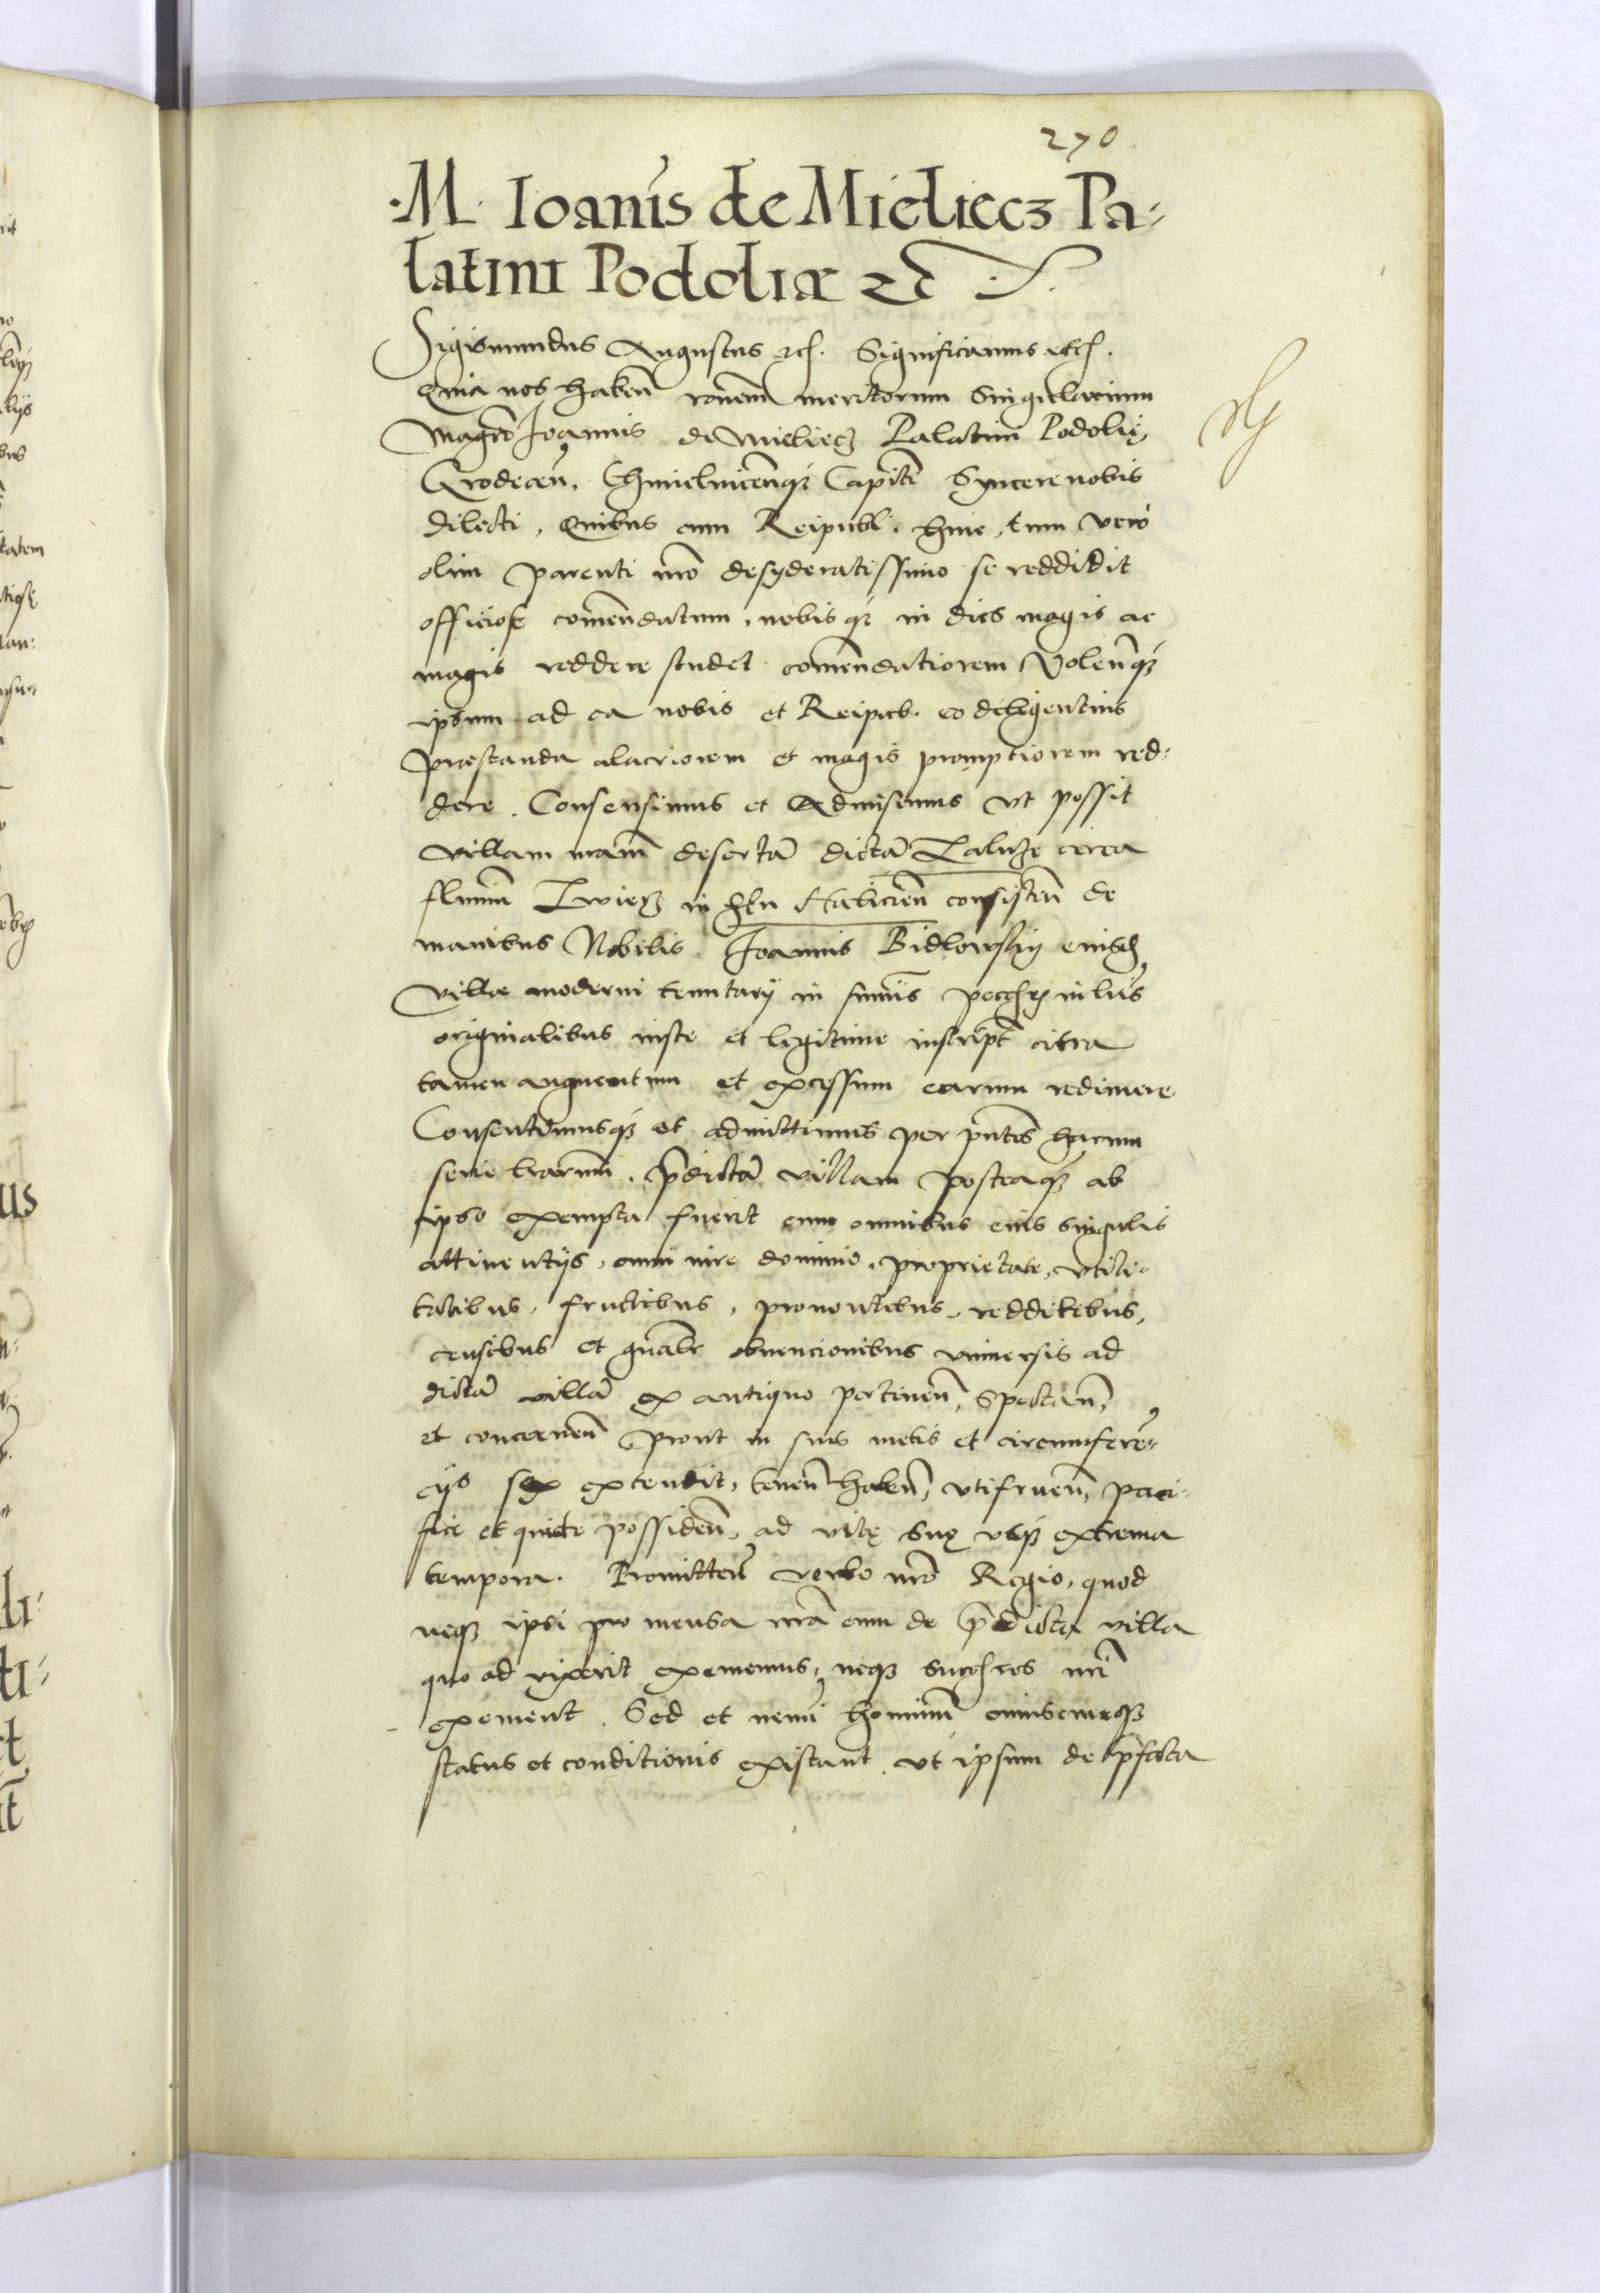 270
M. Ioanis de Mieliecz Pa-
latini Podoliæ
Sigismundus Augustus etc. Significamus etc.
Quia nos haben ronem meritorum Singularium
Magci Ioannis de Mieliecz Palatini Podolię
Grodecen, Chmielnicenque Capitei Syncere nobis
dilecti, Quibus cum Reipubl. huic, tum vero
olim parenti nro desyderatissimo se reddidit
officiose comendatum, nobisque in dies magis ac
magis reddere studet comendatiorem Volenque
ipsum ad ea nobis et Reipub. eo diligentius
præstanda alacriorem et magis promptiorem red-
dere. Consensimus et Admisimus vt possit
villam nram desertā dictā Zaluze circa
flumen in Halicien consisten de
manibus Nobilis Ioannis Bidlowskÿ
villæ moderni tenutarÿ in sumis in lris
originalibus iuste et legitime inscript citra
tamen augmentum et excessum earum redimere
Consentimusque et admittimus per pntes harum
serie lrarum, pdictā villam posteaque ab
ipso exempta fuerit cum omnibus eius singulis
attinentÿs, omni iure dominio, proprietate, vtili-
tatibus, fructibus, prouentibus, redditibus,
censibus et gnalr obuencionibus vniuersis ad
dictā villā ex antiquo pertinen, Spectan,
et concernen prout in suis metis et circumferē-
cÿs sex extendit, tenen haben, vtifruen, paci-
fice et quiete possiden, ad vitę suę vsque extrema
tempora. Promitten verbo nro Regio, quod
neque ipsi pro mensa nra eum de pdicta villa
quo ad vixerit exememus, neque succres nri
exement. Sed et nemi hominum cuiuscunque
status et conditionis existant vt ipsum de pfata